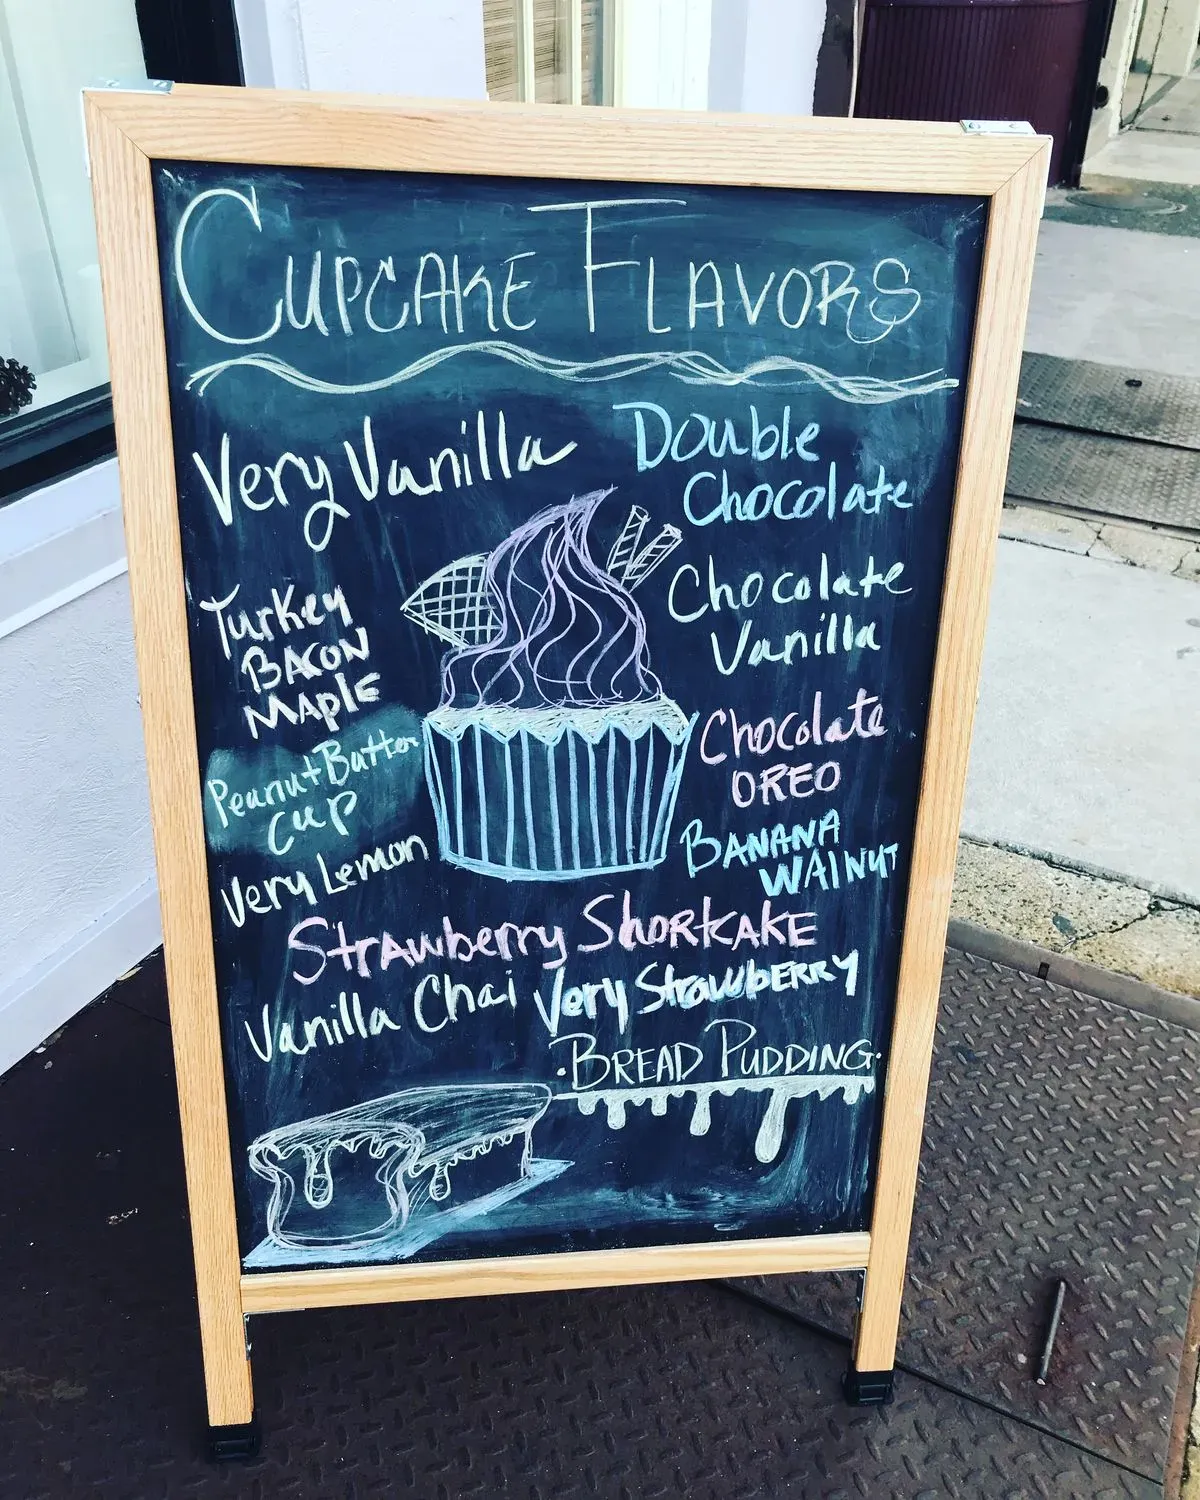 CUPCAKE FLAVORS
Very Vanilla
Double
Chocolate
Turkey
BACON
MAPLE
Chocolate
Vanilla
Peanut Butter
Cup
Chocolate
OREO
Very Lemon
BANANA
WALNUT
Strawberry ShortCAKE
Vanilla Chai Very StrawbERRY
·BREAD PUDDING·